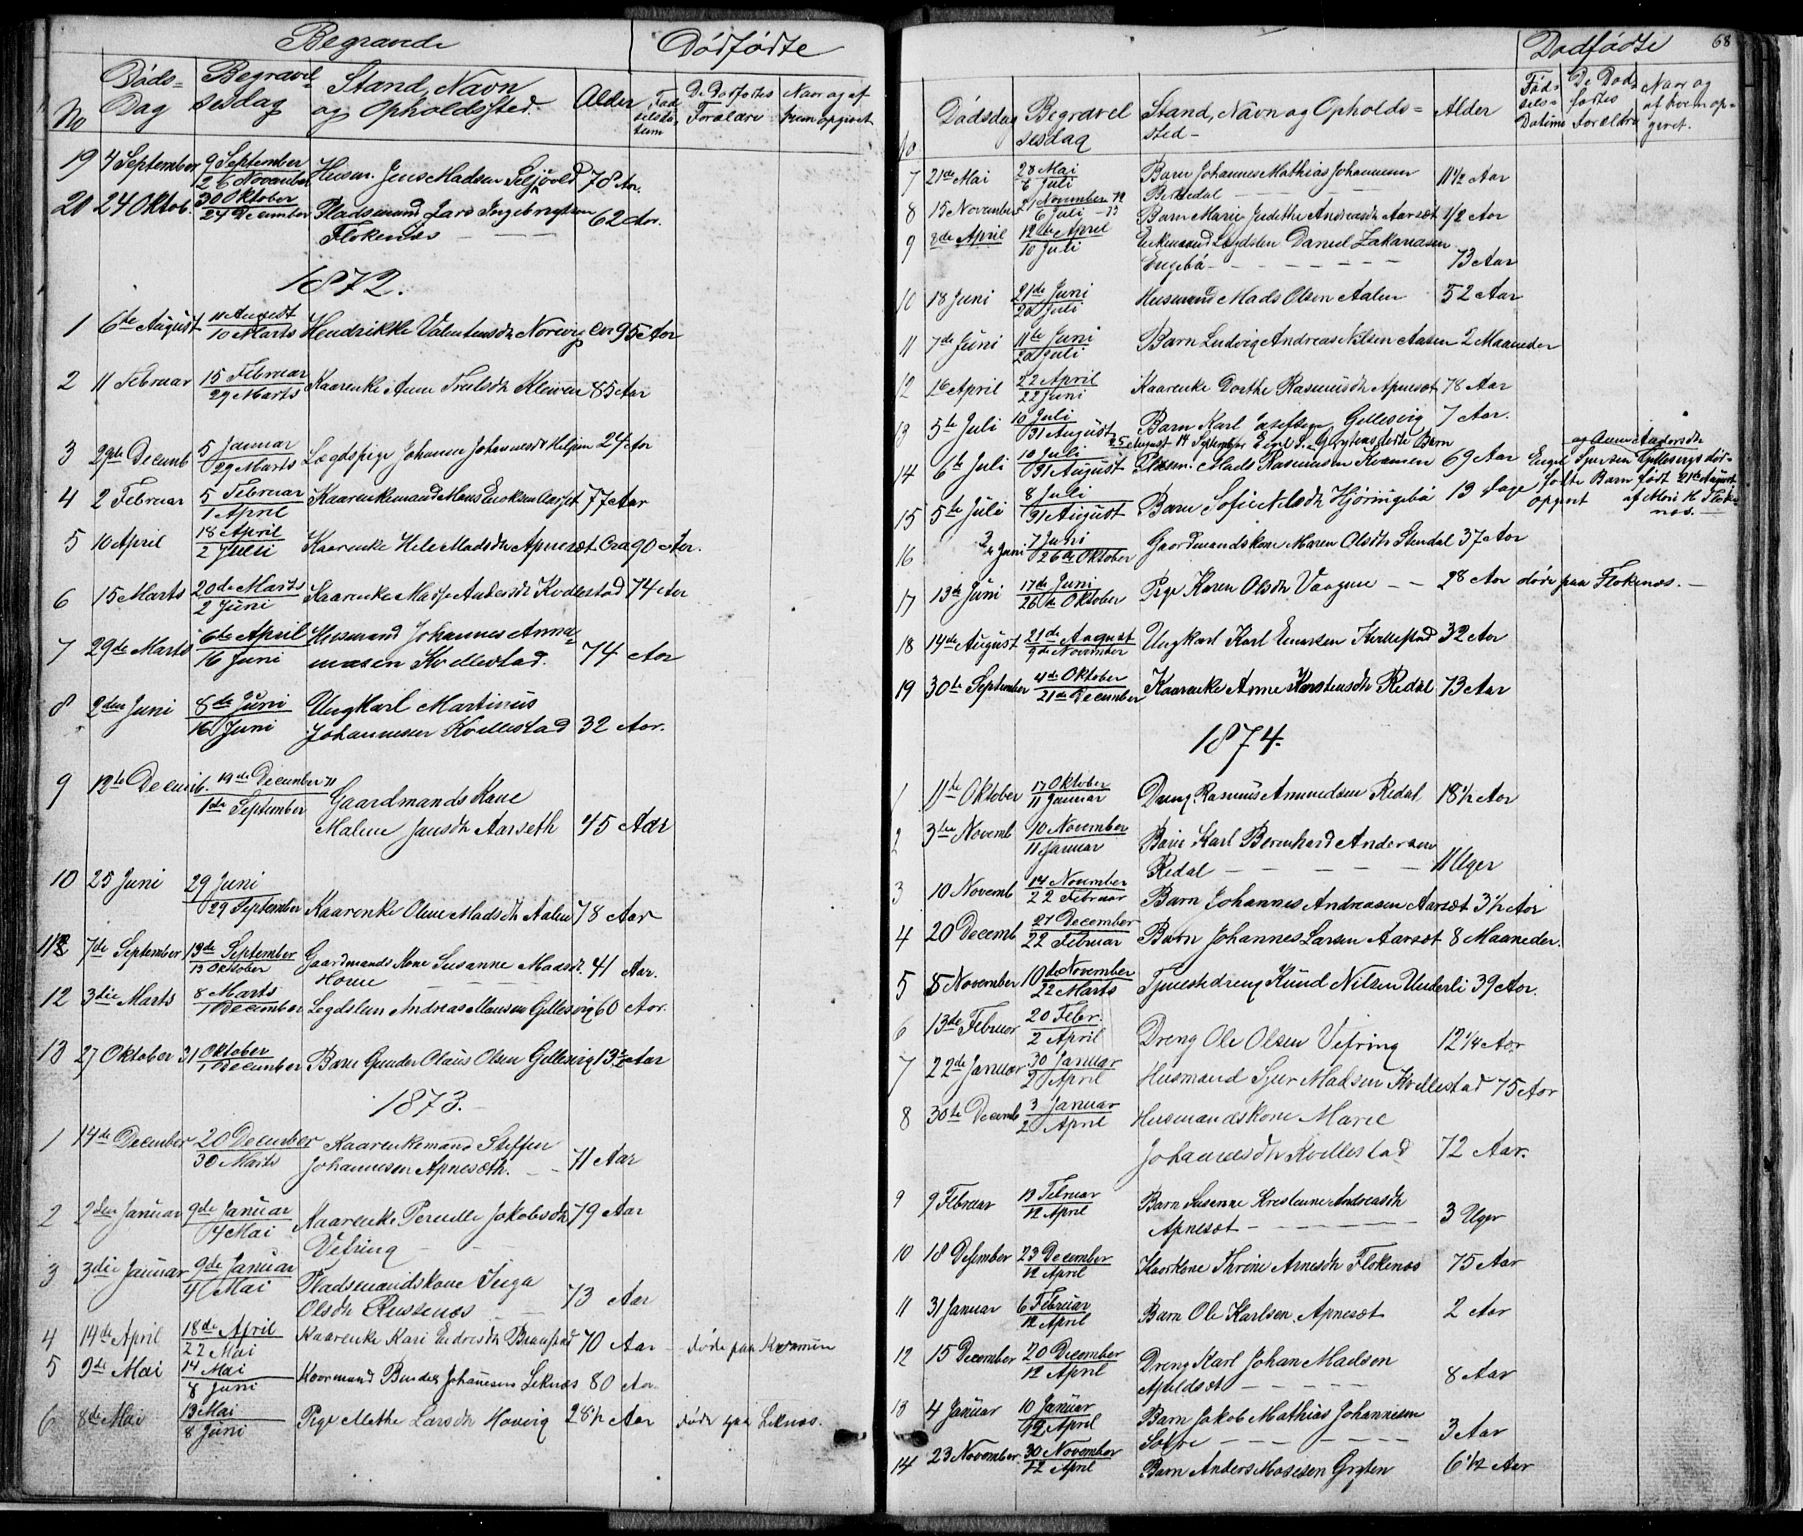 Begravede
Dødfødte
No
Døds-
Dag
Begravel-
sesdag
Stand, Navn
og Opholdssted.
Alder
Fød-
selsda-
tum
De Dødfødtes
Forældre
Naar og af
hvem opgivet
19 4 September 9 September Husm. Jens Madsen 78 Aar.
26 November
20 24 Oktob. 30 Oktober Pladsmand Lars Ingebrigtsen 62 Aar.
24 December
Flokenæs
1872.
1 6te August 11 August Hendrikke Valentinsdtr Norevig ca 95 Aar
10 Marts
2 11 Februar 15 Februar Kaarenke Anne Kleiven 85 Aar
29 Marts
3 29de Decemb 5 Januar Lægdspige Johanne Johannesdtr 24 Aar
29 Marts
4 2 Februar 5 Februar Kaarenkemand Mons Aarset 77 Aar
1 April
5 10 April 18 April Kaarenke Madsdtr Apnesæt Ca 90 Aar.
2 Juni
6 15 Marts 20de Marts Kaarenke Andersdtr Kvellestad 74 Aar
2 Juni
7 29de Marts 6te April Husmand Johannes 74 Aar
16 Juni Kvellestad.
8 2den Juni 8de Juni Ungkarl Martinus
16 Juni Johannesen Kvellestad 32 Aar.
9 12te Decemb. 19de December 71
1ste September Gaardmands Kone
Malene Jansdtr Aarseth 45 Aar
10 25 Juni 29 Juni
29 September Kaarenke Oline Madsdtr Aalen 78 Aar
11 7de September 13de September Gaardmands Kone Susanne Madsd. 41 Aar.
13 Oktober
12 3die Marts 8 Marts Legdslem Andreas Monsen Gillesvig 60 Aar.
1 December
13 27 Oktober 31 Oktober Barn Gunder Olaus Olsen Gillesvig 13½ Aar
1 December
1873.
1 14de December 20 December Kaarenkemand Steffen
30 Marts Johannesen Apneseth. 71 Aar
2 2den Januar 9de Januar Kaarenke Pernille Jakobsdtr 79 Aar
4 Mai
Vefring
3 3die Januar 9de Januar Pladsmandskone Inga
4 Mai Olsdtr Russenæs 73 Aar
4 14de April 18de April Kaarenke Kari Endresdtr 70 Aar døde paa Kvammen
22 Mai
5 9de Mai 14 Mai Kaarmand Bendix Johanesen Leknæs 80 Aar
8 Juni
6 8de Mai 13 Mai Pige Mathe Larsdtr Hovvig 28½ Aar døde paa Leknæs.
8 Juni
68
Dødfødte
Dødsdag
Begravel
sesdag
Stand, Navn og Opholds-
sted-
Alder
Fød-
sels-
Datum
De Død-
fødtes
Forældre
Naar og
af hvem op-
givet.
7 21de Mai 28 Mai Barn Johannes Mathias Johannesen 11½ Aar
6 Juli Redal
8 15 November 21 November 72
6 Juli - 73 Barn Marie Judithe Andreasdtr Aarsæt ½ Aar
9 8de April 12te April Enkemand Lægdslem Daniel Zakariasen
10 Juli Engebø 73 Aar
10 18 Juni 21de Juni Husmand Mads Olsen Aalen 52 Aar
20 Juli
11 7de Juni 11te Juni Barn Ludvig Andreas Nilsen Aasen 2 Maaneder
20 Juli
12 16 April 22 April Kaarenke Dorthe Rasmusdtr Apnesæt 78 Aar
22 Juni
13 5te Juli 10 Juli Barn Karl Gillesvig 7 Aar.
31 August
25 August 14 September
14 6te Juli 10 Juli Mads Rasmusen Kvamen 69 Aar
31 August
og Anne Andersdtr
Gillesvigs død-
fødte Barn født 21de August
opgivet af Moni H. Floke-
næs.
15 5te Juli 8 Juli Barn Sofie Nilsdtr Hjøringebø 13 Dage
31 August
16 2 Juni 7 Juni Gaardmandskone Maren Olsdtr Stendal 37 Aar
26de Oktober
17 13de Juni 17de Juni Pige Karen Olsdtr Vaagene 28 Aar døde paa Flokenæs.
26de Oktober
18 14de August 21de August Ungkarl Karl Einersen Kvellestad 32 Aar
9de November
19 30te September 4de Oktober Kaarenke Anne Karstensdtr Redal 73 Aar
21de December
1874.
1 11te Oktober 17 Oktober Dreng Rasmus Amundsen Redal 18½ Aar
11 Januar
2 3die Novemb 10 November Barn Karl Bernhard Andersen
11 Januar Redal 11 Uger
3 10 Novemb 14 November Barn Johannes Andreasen Aarsæt 3½ Aar
22 Februar
4 20 Decemb 27 December Barn Johannes Larsen Aarsæt 8 Maaneder.
22 Februar
5 5 November 10de November Tjenestedreng Knud Nilsen Underli 39 Aar.
22 Marts
6 13de Februar 20 Febr. Dreng Ole Olsen Vefring 12¼ Aar
2 April
7 22de Januar 30 Januar Husmand Sjur Madsen Kvellestad 75 Aar
2 April
8 30te Decemb 3 Januar Husmandskone Marie
2 April
Johannesdtr Kvellestad 72 Aar.
9 9 Februar 13 Februar Barn Susanne Kristenne Andreasdtr
12 April Apnesæt 3 Uger
10 18 December 23 December Kaarkone Thrine Arnesdtr Flokenæs 75 Aar
12 April
11 31 Januar 6 Februar Barn Ole Karlsen Apnesæt 2 Aar
12 April
12 15 December 20 December Dreng Karl Johan Madsen
12 April 8 Aar
13 4 Januar 10 Januar Barn Jakob Mathias Johannesen
12 April 3 Aar
14 23 November 30 November Barn Anders Mosesen Gryten 6½ Aar
12 April